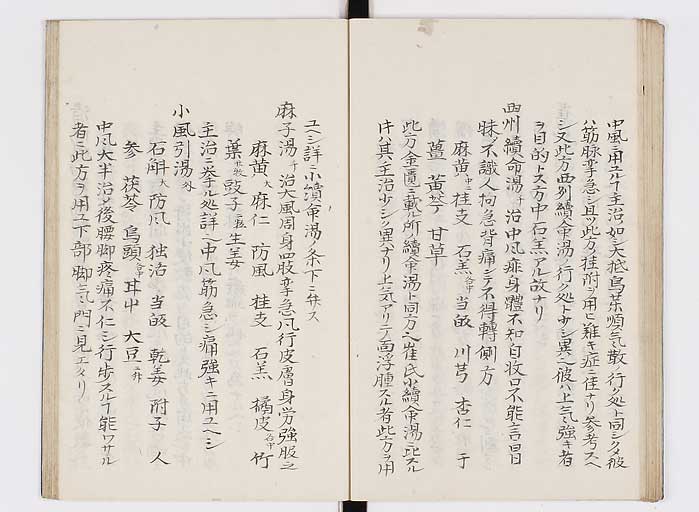 中風ニ用ユルヿ主治ノ如シ大抵烏薬順気散ノ行ク処ト同シクメ彼
ハ筋脉攣急シ且ツ此方ノ桂附ヲ用ヒ難キ症ニ佳ナリ参考スヘ
シ又此方西列續命湯ノ行ク処ト少シ異ヘ彼ハ上気強キ者
ヲ目的トス方中石羔アル故ナリ
西州續命湯 千 治中風痱身體不知自收口不能言冒
昧不識人拘急背痛シテ不得轉側方
麻黄 桂支 石羔 當皈 川芎 杏仁 干
薑 黄芩 甘草
此方金匱ニ載ル所ノ續命湯ト同方ヘ崔氏小續命湯ニ比スル
キハ其主治少シク異ナリ上気アリテ面浮腫スル者此方ヲ用
ユヘシ詳ニ小續命湯ノ条下ニ弁ス
麻子湯 治大風周身四肢攣急风行皮膚身労強服之
麻黄 大 麻仁 防風 桂支 石羔 橘皮 竹
葉 豉子 生姜
主治ニ挙ル処詳ヘ中风筋急シ痛強キニ用ユヘシ
小風引湯 外
石斛 大 防风 独活 当皈 乾姜 附子 人
参 茯苓 烏頭 甘中 大豆
中风大半治メ後腰脚疼痛不仁シ行歩スルヿ能ワサル
者ニ此方ヲ用ユ下部脚気門ニ見エタリ